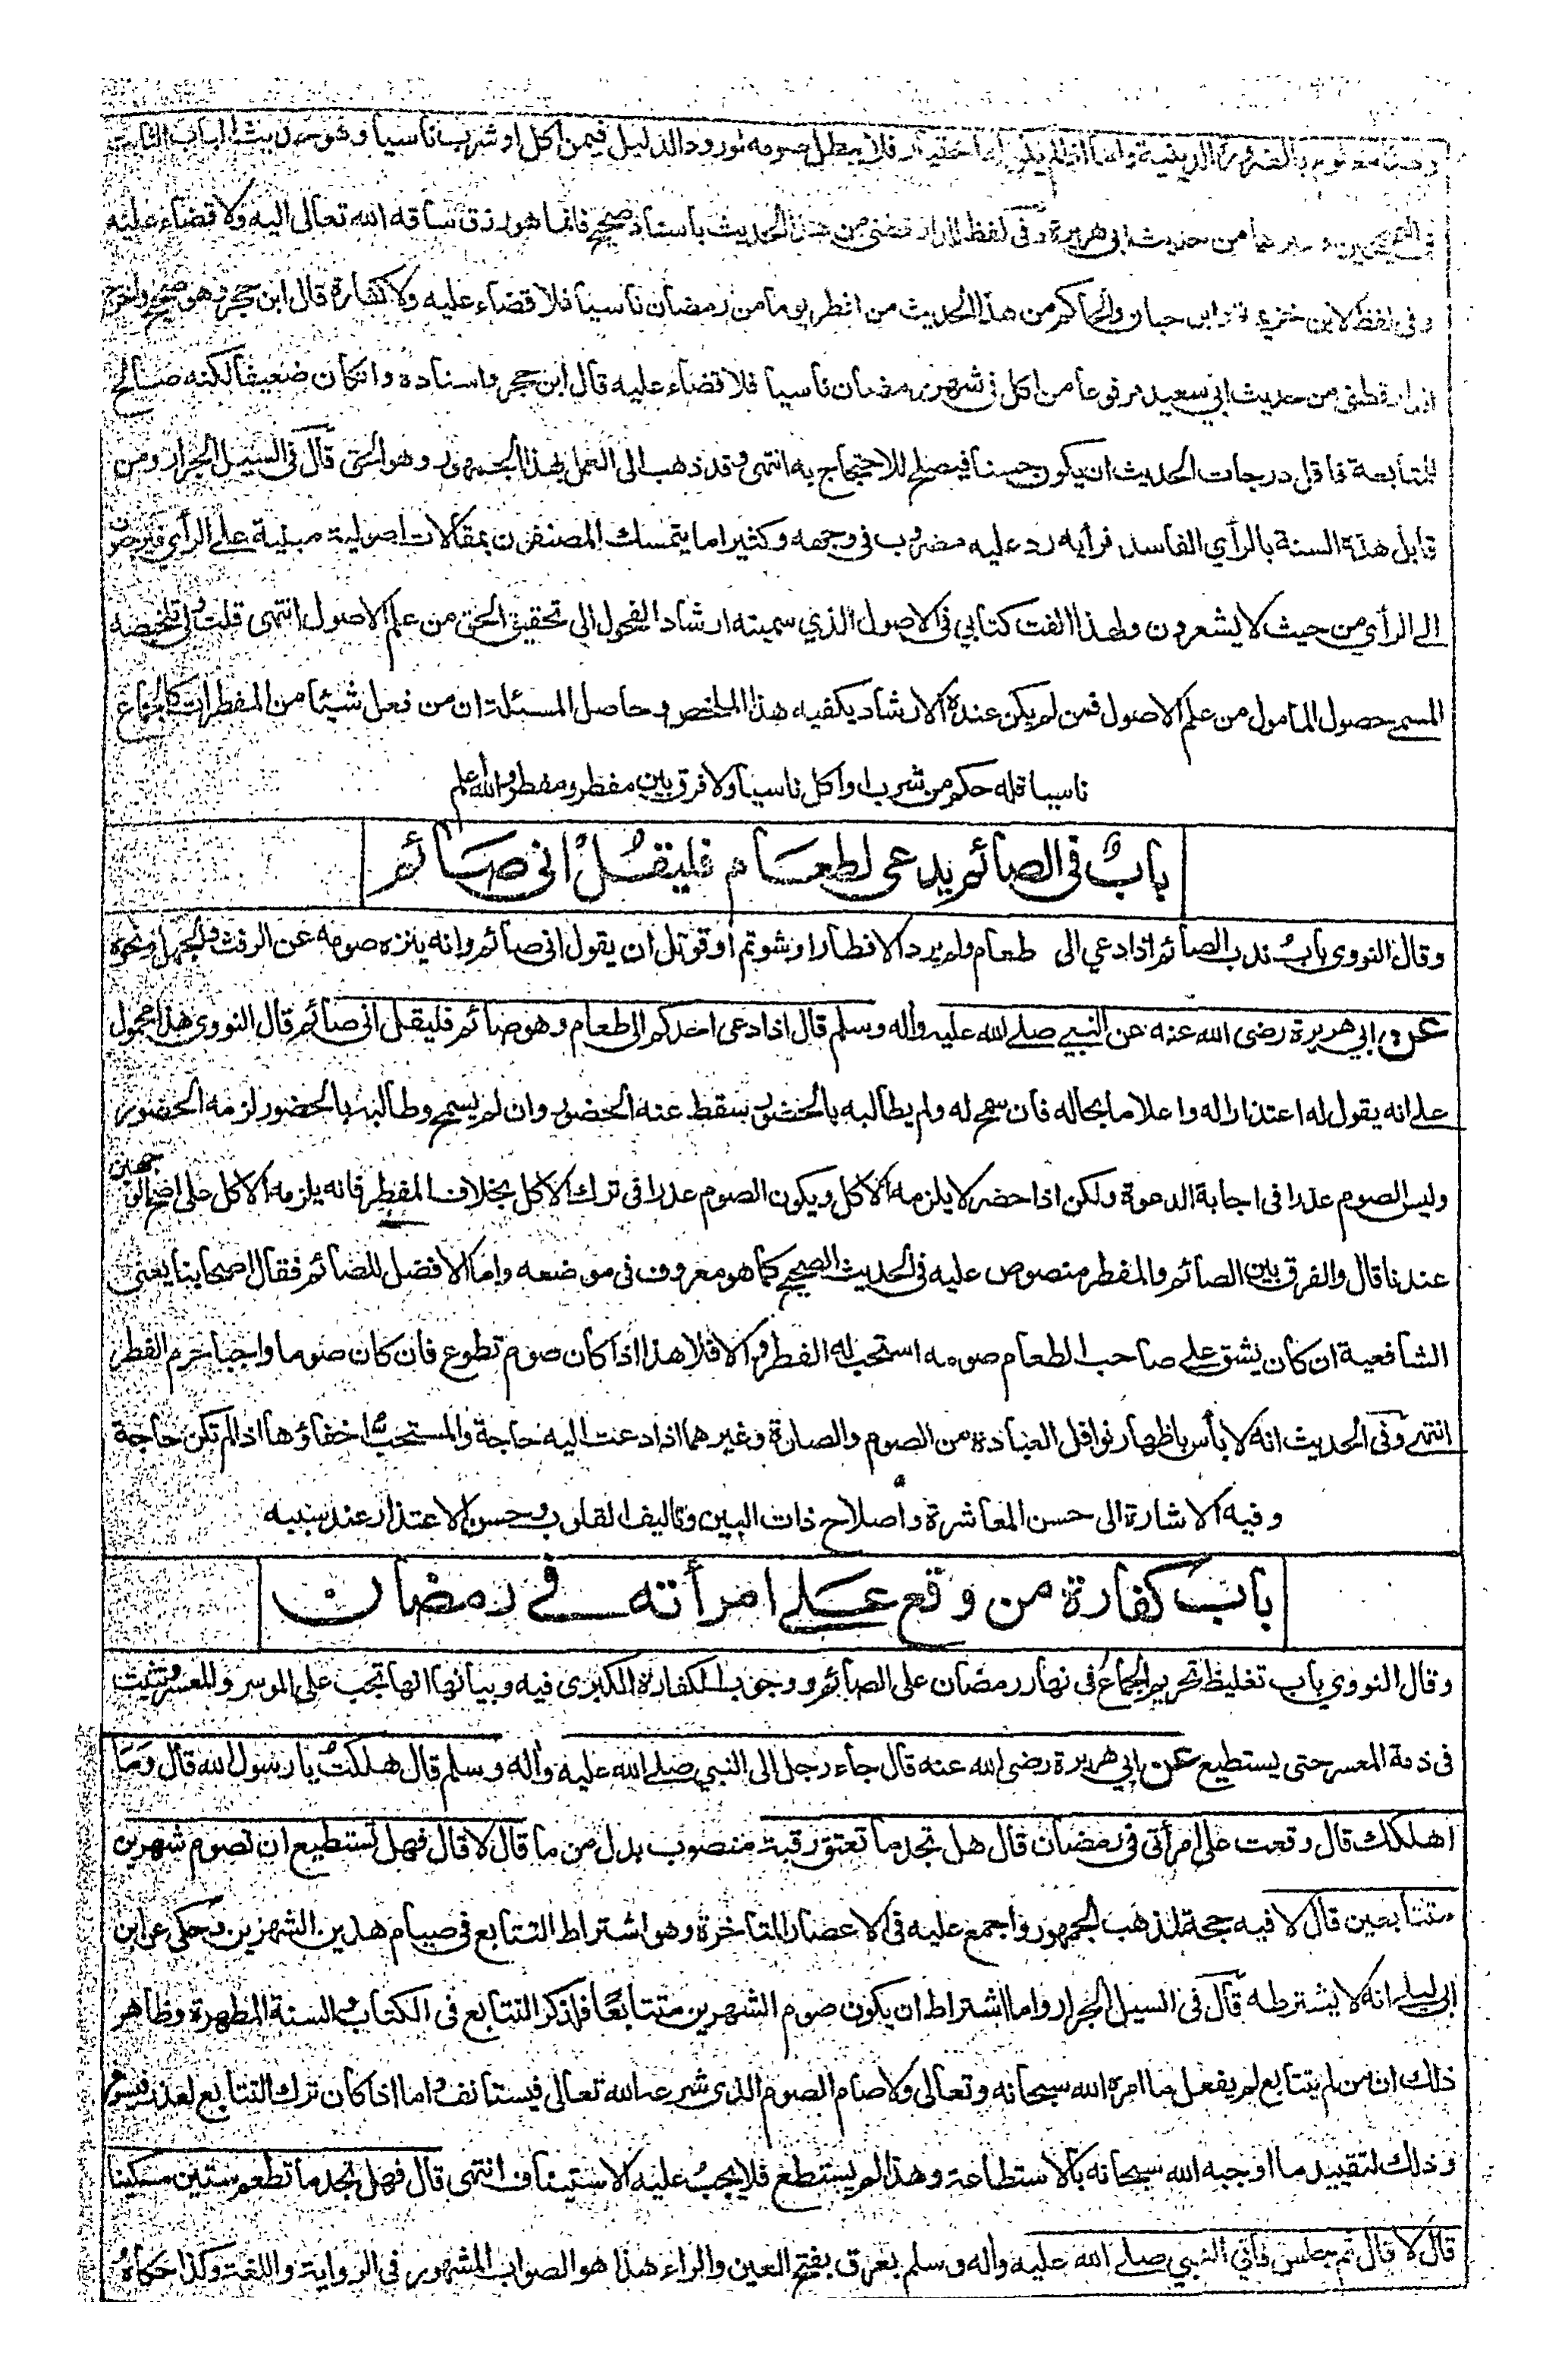 وهذا معلوم بالضرورة الدينية واما اذا لم يكن فلا يبطل صومه لورود الدليل فيمن اكل او شرب ناسيا وهو حديث الباب الثابت
في الصحيحين وغيرهما من حديث ابي هريرة وفي لفظ للدارقطني من هذا الحديث باسناد صحيح فانما هو رزق ساقه الله تعالى اليه ولا قضاء عليه
وفي لفظ لابن خزيمة وابن حبان والحاكم من هذا الحديث من افطر يوما من رمضان ناسيا فلا قضاء عليه ولا كفارة قال ابن حجر وهو صحيح واخرج
الدارقطني من حديث ابي سعيد مرفوعا من اكل في شهر رمضان ناسيا فلا قضاء عليه قال ابن حجر واسناده وانكان ضعيفا لكنه صالح
للمتابعة فاقل درجات الحديث ان يكون حسنا فيصلح للاحتجاج به انتهى وقد ذهب الى العمل بهذا الجمهور وهو الحق قال في السيل الجرار ومن
قابل هذه السنة بالرأي الفاسد فرأيه رد عليه مضروب في وجهه وكثيرا ما يتمسك المصنفون بمقالات اصولية مبنية على الرأي فيرجعون
الى الرأي من حيث لا يشعرون ولهذا الفت كتابي في الاصول الذي سميته ارشاد الفحول الى تحقيق الحق من علم الاصول انتهى قلت ولي تلخيصه
المسمى حصول المامول من علم الاصول فمن لم يكن عنده الارشاد يكفيه هذا الملخص وحاصل المسئلة ان من فعل شيئا من المفطرات كالجماع
ناسيا فله حكم من شرب او اكل ناسيا ولا فرق بين مفطر ومفطر والله اعلم
بابٌ في الصائم يدعى لطعام فليقُلْ اني صائم
وقال النووي بابُ ندب الصائم اذا دعي الى طعام ولم يرد الافطار او شوتم او قوتل ان يقول اني صائم وانه ينزه صومه عن الرفث والجهل ونحوه
عن ابي هريرة رضى الله عنه عن النبي صلى الله عليه واله وسلم قال اذا دعى احدكم الى طعام وهو صائم فليقل اني صائم قال النووي هذا محمول
على انه يقول له اعتذارا له واعلاما بحاله فان سمح له ولم يطالبه بالحضور سقط عنه الحضور وان لم يسمح وطالبه بالحضور لزمه الحضور
وليس الصوم عذرا في اجابة الدعوة ولكن اذا حضر لا يلزمه الاكل ويكون الصوم عذرا في ترك الاكل بخلاف المفطر فانه يلزمه الاكل على اصح الوجهين
عندنا قال والفرق بين الصائم والمفطر منصوص عليه في الحديث الصحيح كما هو معروف في موضعه واما الافضل للصائم فقال اصحابنا يعني
الشافعية ان كان يشق على صاحب الطعام صومه استحب له الفطر والا فلا هذا اذا كان صوم تطوع فان كان صوما واجبا حرم الفطر
انتهى وفي الحديث انه لا بأس باظهار نوافل العبادة من الصوم والصلوة وغيرهما اذا دعت اليه حاجة والمستحب اخفاؤها اذا لم تكن حاجة
وفيه الاشارة الى حسن المعاشرة واصلاح ذات البين وتاليف القلوب وحسن الاعتذار عند سببه
بابُ كفارة من وقع على امرأته في رمضان
وقال النووي باب تغليظ تحريم الجماع في نهار رمضان على الصائم ووجوب الكفارة الكبرى فيه وبيانها انها تجب على الموسر والمعسر وتثبت
في ذمة المعسر حتى يستطيع عن ابي هريرة رضى الله عنه قال جاء رجل الى النبي صلى الله عليه واله وسلم قال هلكتُ يا رسول الله قال وَمَا
اهلكك قال وقعت على امرأتي في رمضان قال هل تجد ما تعتق رقبة منصوب بدل من ما قال لا قال فهل تستطيع ان تصوم شهرين
متتابعين قال لا فيه حجة لمذهب الجمهور واجمع عليه في الاعصار المتاخرة وهو اشتراط التتابع في صيام هذين الشهرين وحكى عن ابن
ابي ليلى انه لا يشترطه قال في السيل الجرار واما اشتراط ان يكون صوم الشهرين متتابعًا فلذكر التتابع في الكتاب والسنة المطهرة وظاهر
ذلك ان من لم يتتابع لم يفعل ما امره الله سبحانه وتعالى ولا صام الصوم الذي شرعه الله تعالى فيستانف واما اذا كان ترك التتابع لعذر فيسوغ
وذلك لتقييد ما اوجبه الله سبحانه بالاستطاعة وهذا لم يستطع فلا يجب عليه الاستيناف انتهى قال فهل تجد ما تطعم ستين مسكينا
قال لا قال ثم جلس فأتي النبي صلى الله عليه واله وسلم بعرق بفتح العين والراء هذا هو الصواب المشهور في الرواية واللغة وكذا حكاه